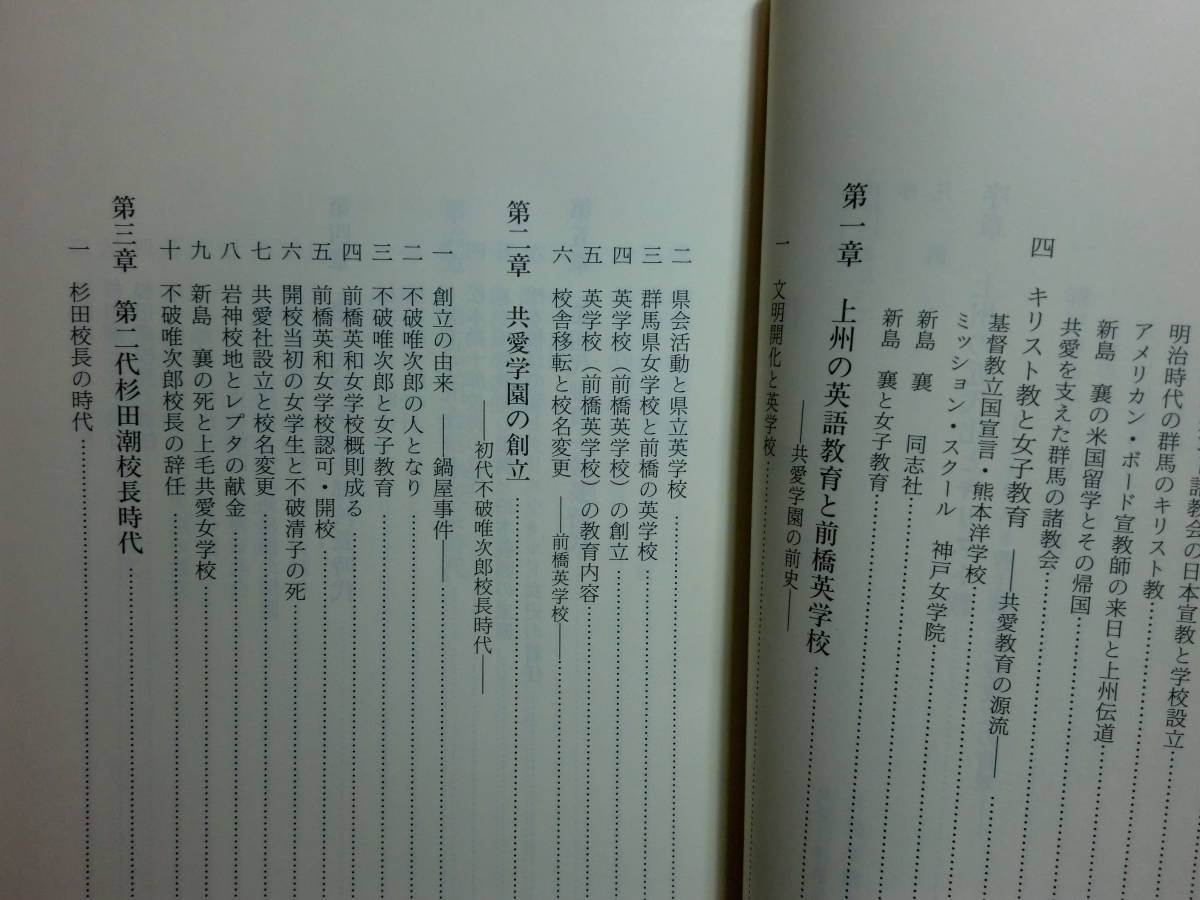 教会の日本宣教と学校設立
明治時代の群馬のキリスト教
アメリカン・ボード宣教師の来日と上州伝道
新島 襄の米国留学とその帰国
共愛を支えた群馬の諸教会
四 キリスト教と女子教育 ――共愛教育の源流――
基督教立国宣言・熊本洋学校
ミッション・スクール 神戸女学院
新島 襄 同志社
新島 襄と女子教育
第一章 上州の英語教育と前橋英学校
――共愛学園の前史――
一 文明開化と英学校
二 県会活動と県立英学校
三 群馬県女学校と前橋の英学校
四 英学校（前橋英学校）の創立
五 英学校（前橋英学校）の教育内容
六 校舎移転と校名変更 ――前橋英学校――
第二章 共愛学園の創立
――初代不破唯次郎校長時代――
一 創立の由来 ――鍋屋事件――
二 不破唯次郎の人となり
三 不破唯次郎と女子教育
四 前橋英和女学校概則成る
五 前橋英和女学校認可・開校
六 開校当初の女学生と不破清子の死
七 共愛社設立と校名変更
八 岩神校地とレプタの献金
九 新島 襄の死と上毛共愛女学校
十 不破唯次郎校長の辞任
第三章 第二代杉田潮校長時代
一 杉田校長の時代